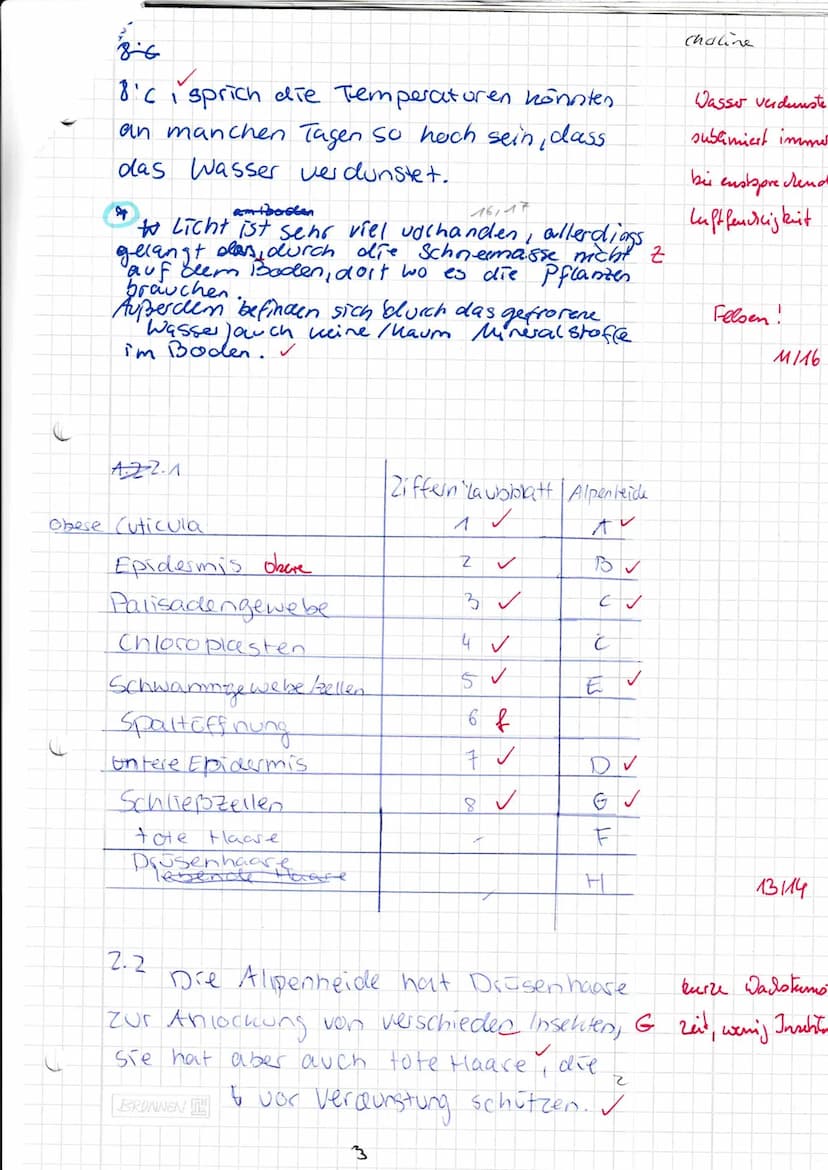 Chaline
8°C
8°C, sprich die Temperaturen könnten
an manchen Tagen so hoch sein, dass
das Wasser verdunstet.
Wasser verdunste
sublimiert imme
bei entsprechend
Luftfeuchtigkeit
am Boden
16/17
Licht ist sehr viel vorhanden, allerdings
gelangt das, durch die Schneemasse nicht Z
auf dem Boden, dort wo es die Pflanzen
brauchen.
Außerdem befinden sich durch das gefrorene
Wasser, auch keine/kaum Mineralstoffe
im Boden.
Felsen!
11/16
A.2 2.1
Ziffern Laubblatt Alpenheide
Obese Cuticula 1 A
Epidermis obere 2 B
Palisadengewebe 3 C
Chloroplasten 4 C
Schwammgewebe/zellen 5 E
Spaltöffnung 6 f
untere Epidermis 7 D
Schließzellen 8 G
tote Haare - F
Drüsenhaare
lebende Haare - H
13/14
2.2 Die Alpenheide hat Drüsenhaare
zur Anlockung von verschieden Insekten, G
sie hat aber auch tote Haare, die
vor Verdunstung schützen.
kurze Wachstums
zeit, wenig Insekt
BRUNNEN
3